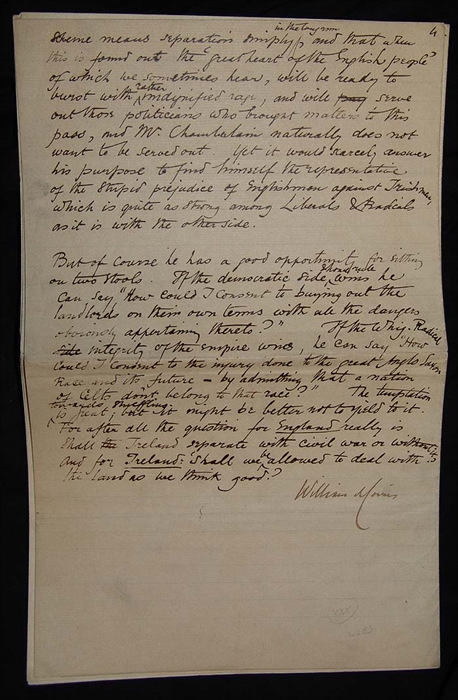 4
in the long run
Scheme means separation simply, and that when
this is found out the "great heart of the English people"
of which we sometimes hear, will be ready to
burst with rather undignified rage, and will serve
out those politicians who brought matters to this
pass, and Mr. Chamberlain naturally does not
want to be served out. Yet it would scarcely answer
his purpose to find himself the representative
of the stupid prejudice of Englishmen against Irishmen,
which is quite as strong among Liberals & Radicals
as it is with the other side.
But of course he has a good opportunity for sitting
on two stools. If the democratic side wins he
can say, "How could I consent to buying out the
landlords on their own terms with all the dangers
obviously appertaining thereto?" If the Whig-Radical
integrity of the empire wins, he can say "How
could I consent to the injury done to the great Anglo Saxon
Race and its future – by admitting that a nation
of Celts don't belong to that race?" The temptation
is great, but it might be better not to yield to it.
For after all the question for England really is
Shall Ireland separate with civil war or without it?
And for Ireland: Shall we be allowed to deal with
the land as we think good?
William Morris